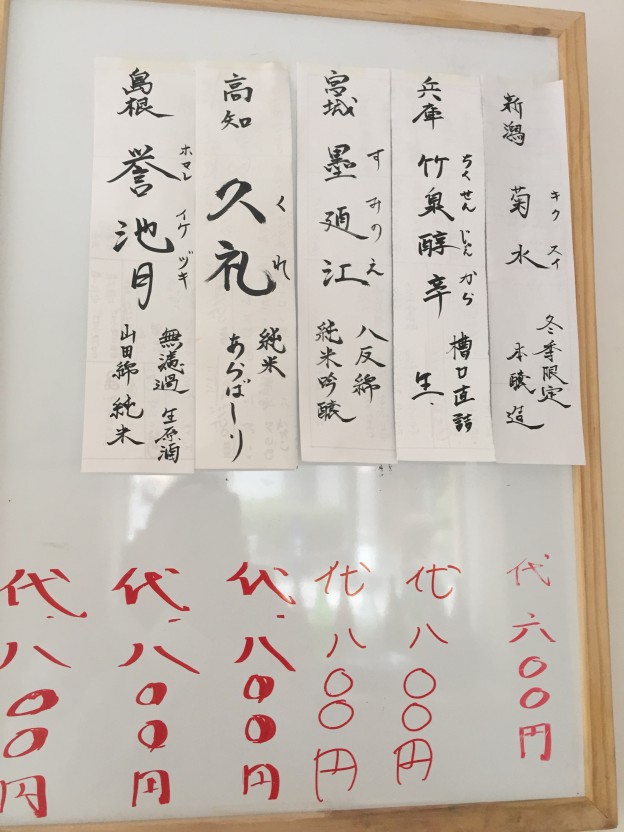 新潟
菊水
キクスイ
冬季限定
本醸造
兵庫
竹泉醇辛
ちくせんじゅんから
槽口直詰
生
宮城
墨廼江
すみのえ
八反錦
純米吟醸
高知
久礼
くれ
純米
あらばしり
島根
誉池月
ホマレイケヅキ
無濾過 生原酒
山田錦 純米
代六〇〇円
代八〇〇円
代八〇〇円
代八〇〇円
代八〇〇円
代八〇〇円